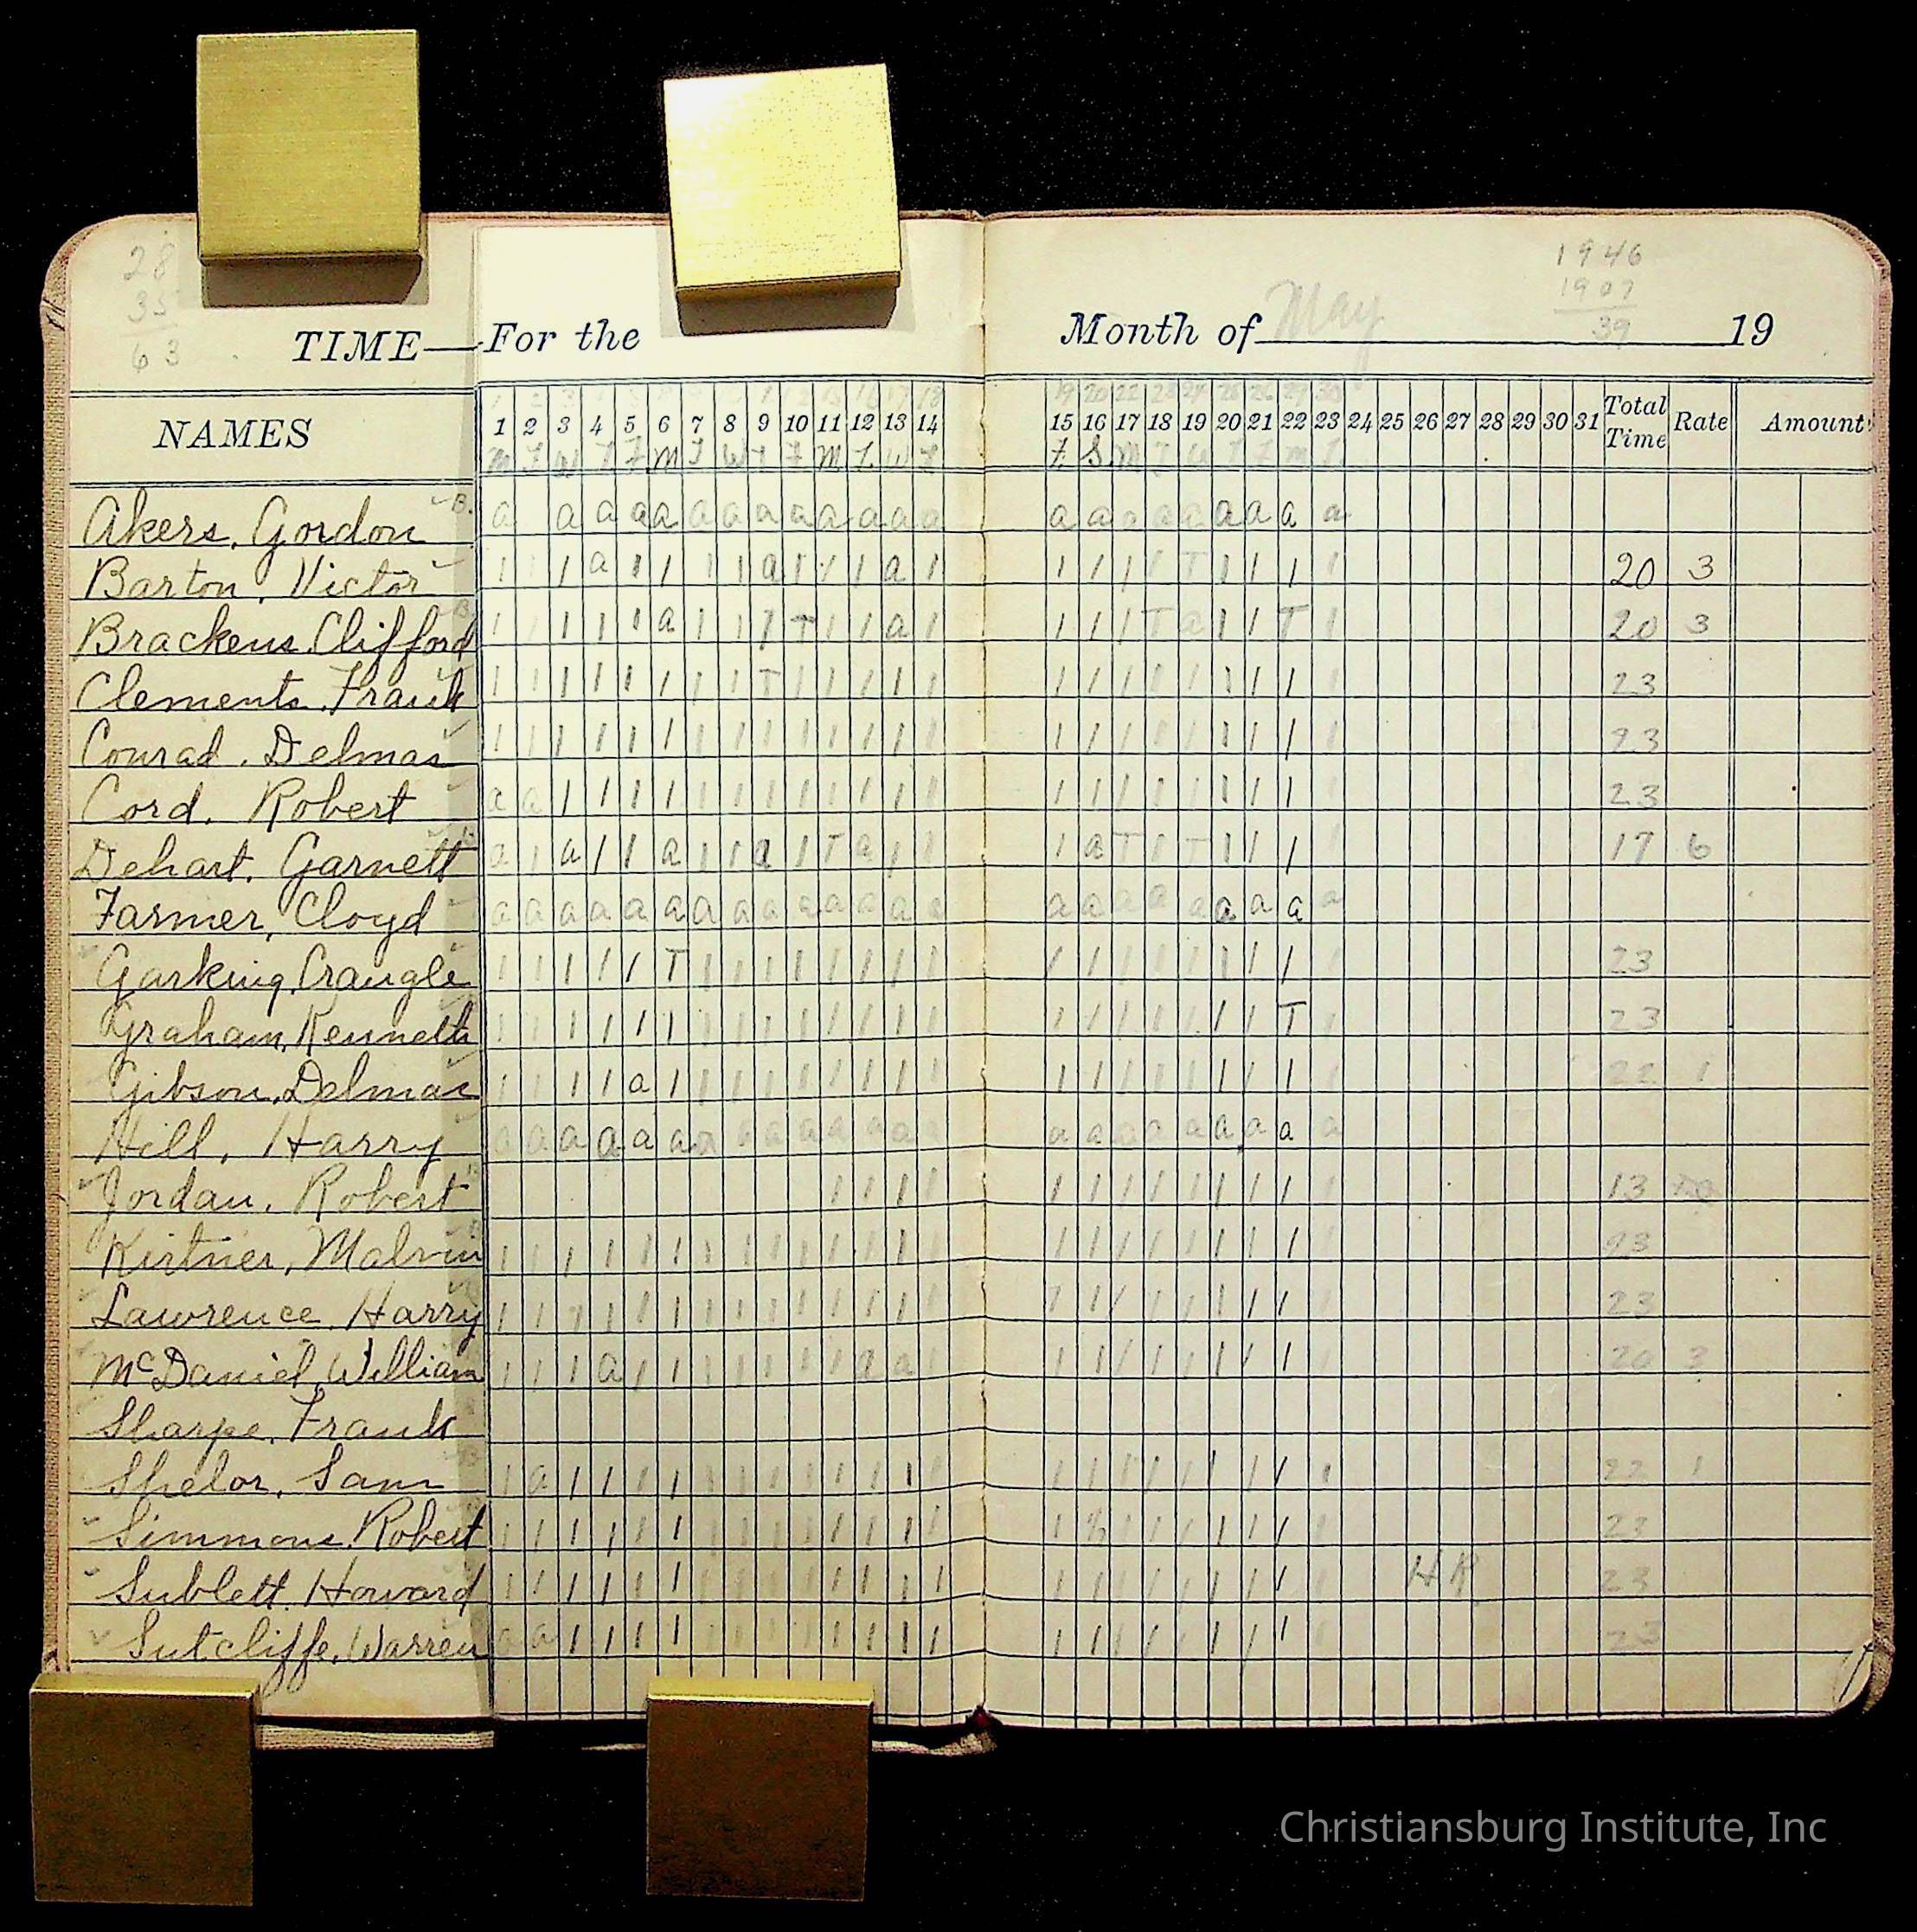 28
35
63
1946
1907
39
TIME — For the Month of May 19
NAMES 1 2 3 4 5 6 7 8 9 10 11 12 13 14 15 16 17 18 19 20 21 22 23 24 25 26 27 28 29 30 31 Total Time Rate Amount
Akers, Gordon a a a a a a a a a a a a a a a a a a a a a a
Barton, Victor 1 1 1 a 1 1 1 1 a 1 1 1 a 1 1 1 1 1 T 1 1 1 1 20 3
Brackens, Clifford 1 1 1 1 1 a 1 1 1 T 1 1 a 1 1 1 1 T a 1 1 T 1 20 3
Clements, Frank 1 1 1 1 1 1 1 1 T 1 1 1 1 1 1 1 1 1 1 1 1 1 1 23
Conrad, Delmas 1 1 1 1 1 1 1 1 1 1 1 1 1 1 1 1 1 1 1 1 1 1 1 23
Cord, Robert a a 1 1 1 1 1 1 1 1 1 1 1 1 1 1 1 1 1 1 1 1 1 23
Dehart, Garnett a 1 a 1 1 a 1 1 a 1 T a 1 1 1 a T 1 T 1 1 1 1 17 6
Farmer, Cloyd a a a a a a a a a a a a a a a a a a a a a a a
Garking, Craugle 1 1 1 1 1 T 1 1 1 1 1 1 1 1 1 1 1 1 1 1 1 1 1 23
Graham, Kenneth 1 1 1 1 1 1 1 1 1 1 1 1 1 1 1 1 1 1 1 1 1 T 1 23
Gibson, Delmas 1 1 1 1 a 1 1 1 1 1 1 1 1 1 1 1 1 1 1 1 1 1 1 22 1
Hill, Harry a a a a a a a a a a a a a a a a a a a a a a a
Jordan, Robert 1 1 1 1 1 1 1 1 1 1 1 1 1 13
Kirtner, Malvin 1 1 1 1 1 1 1 1 1 1 1 1 1 1 1 1 1 1 1 1 1 1 1 23
Lawrence, Harry 1 1 1 1 1 1 1 1 1 1 1 1 1 1 1 1 1 1 1 1 1 1 1 23
McDaniel, William 1 1 1 a 1 1 1 1 1 1 1 a a 1 1 1 1 1 1 1 1 1 1 20 3
Sharpe, Frank
Shelor, Sam 1 a 1 1 1 1 1 1 1 1 1 1 1 1 1 1 1 1 1 1 1 1 1 22 1
Simmons, Robert 1 1 1 1 1 1 1 1 1 1 1 1 1 1 1 1 1 1 1 1 1 1 23
Sublett, Howard 1 1 1 1 1 1 1 1 1 1 1 1 1 1 1 1 1 1 1 1 1 1 1 HR 23
Sutcliffe, Warren a a 1 1 1 1 1 1 1 1 1 1 1 1 1 1 1 1 1 1 1 1 1 23
Christiansburg Institute, Inc